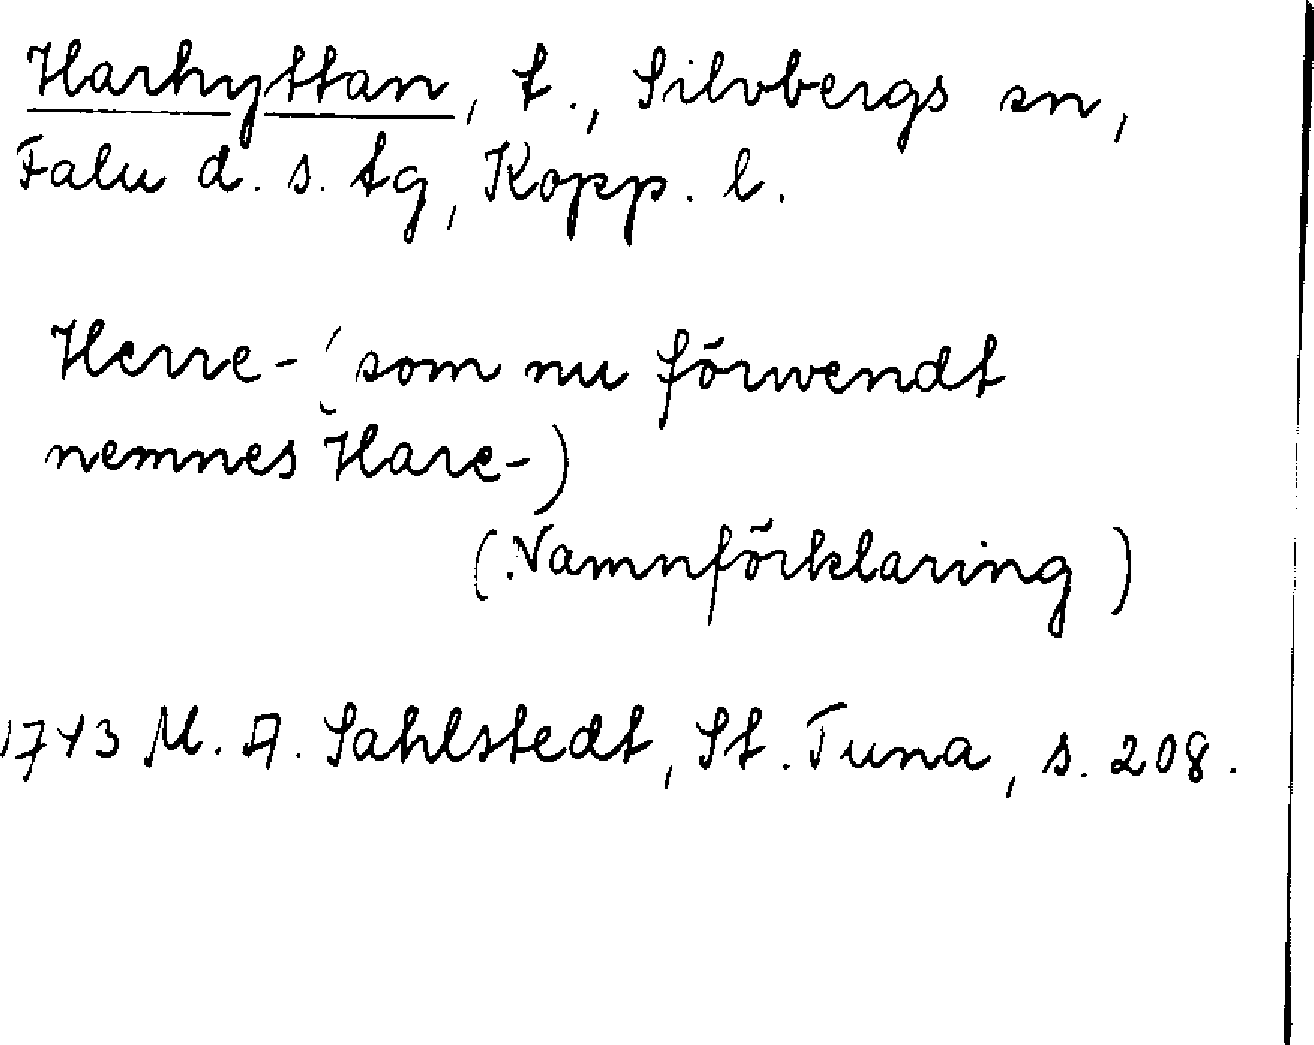 Harhyttan, t., Silvbergs sn,
Falu d. s. tg, Kopp. l.
Herre- (som nu förwendt
nemnes Hare-)
(Namnförklaring)
1743 M. A. Sahlstedt, St. Tuna, s. 208.